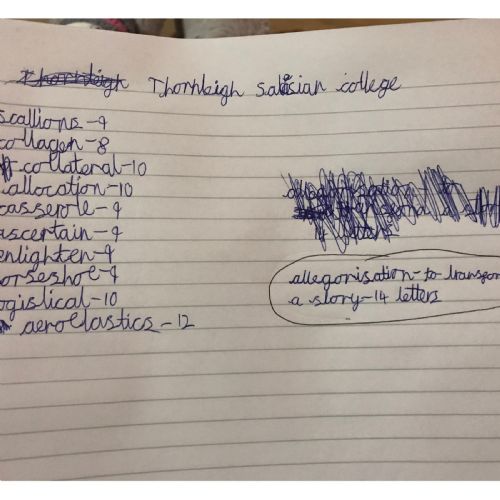 Thornleigh Thornleigh Salesian college
scallions-9
collagen-8
collateral-10
allocation-10
casserole-9
ascertain-9
enlighten-9
horseshoe-9
logistical-10
aeroelastics-12
allegorisation-to transpor
a story-14 letters